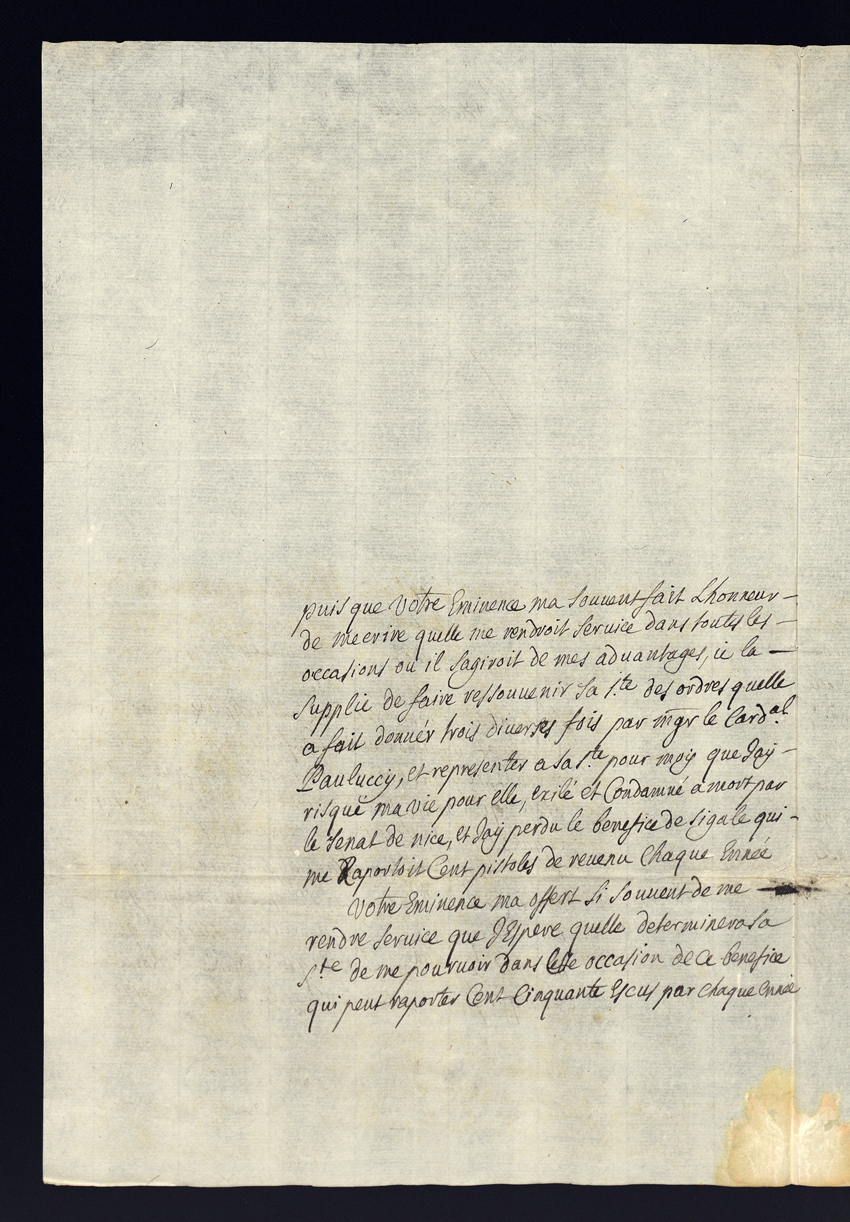 puisque Votre Eminence ma souvent fait Lhonneur
de mecrire quelle me rendroit service dans toutes les
occasions ou il sagiroit de mes aduantages, ie la
supplie de faire ressouvenir sa S.te des ordres quelle
a fait donnér trois diverses fois par mgr le Card.al
Pauluccy, et representer a sa S.te pour moy que Jay
risqué ma vie pour elle, exilé et Condamné a mort par
le senat de nice, et Jay perdu le benefice de sigale qui
me Raportoit Cent pistoles de revenu Chaque Année
Votre Eminence ma offert si souvent de me
rendre service que J'Espere quelle determinera sa
S.te de me pourvoir dans cette occasion de Ce benefice
qui peut raporter Cent Cinquante Escus par Chaque Année